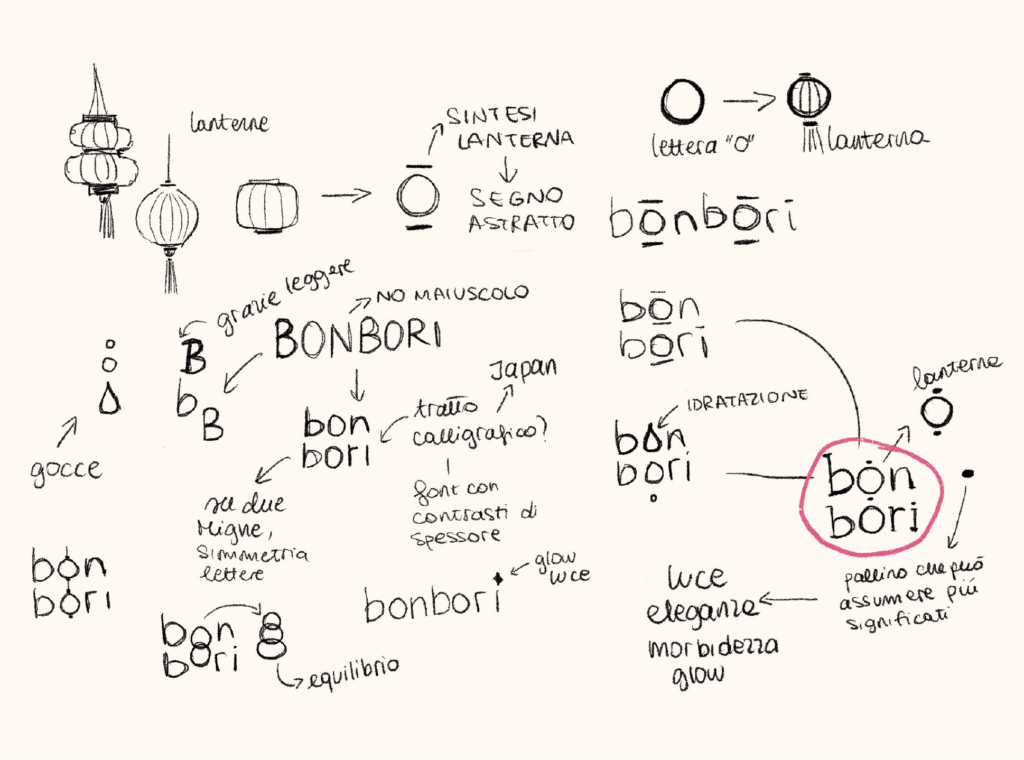 lanterne
SINTESI
LANTERNA
SEGNO
ASTRATTO
lettera "O"
lanterna
bōnbōrī
bōn
bori
grazie leggere
NO MAIUSCOLO
BONBORI
B
b
B
gocce
bon
bori
tratto
calligrafico?
Japan
font con
contrasti di
spessore
su due
righe,
simmetria
lettere
bon
bori
bon
bori
equilibrio
bonbori
glow
luce
IDRATAZIONE
bon
bori
lanterna
bȯn
bȯri
pallino che può
assumere più
significati
luce
eleganza
morbidezza
glow